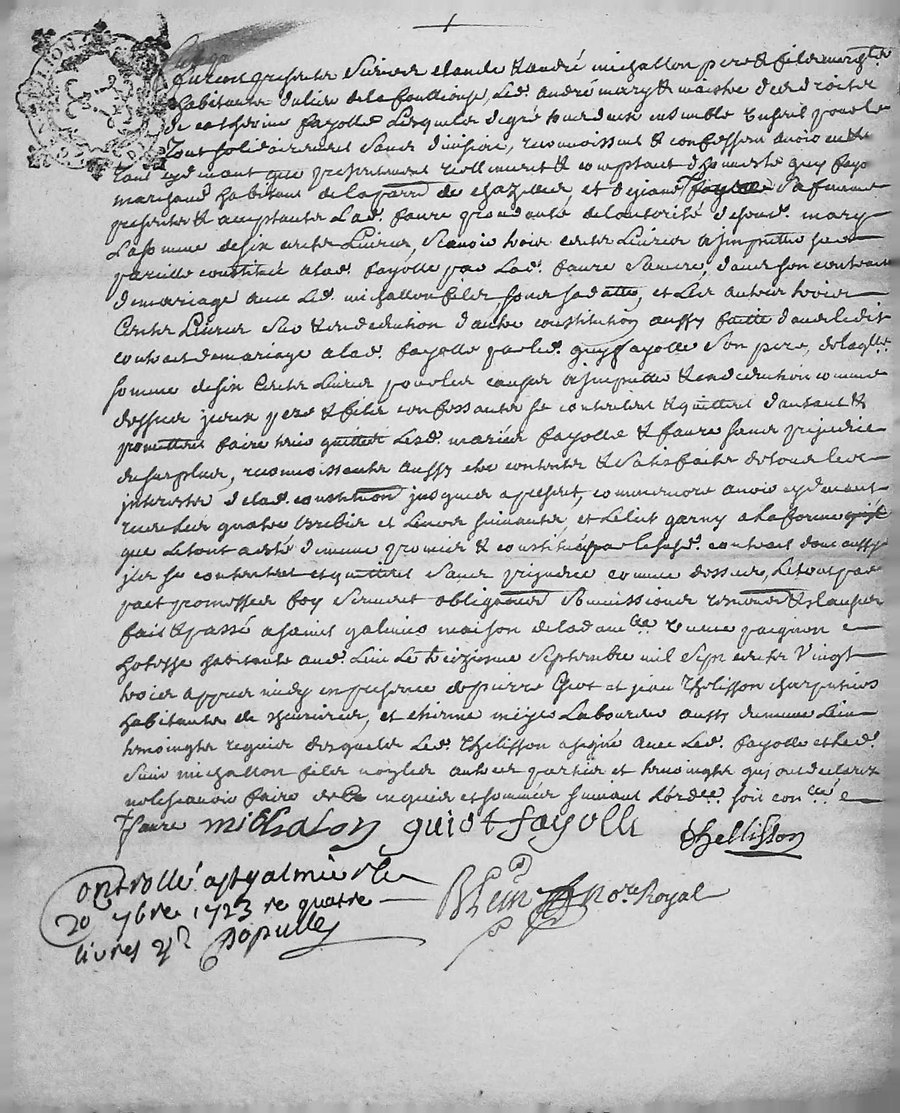 LION
furent presents Sieurs claude & andré michallon pere & fils march.ds
habitants du lieu de la fouillouse, led. andré mary & maistre des droicts
de catherine fayolle lesquels de gré tous deux ensemble & un seul pour le
tout solidairement sans division, reconnoissent & confessent avoir eu &
reçu cy devant que presentement reellement & comptant d'honneste guy fayo
marchand habitant de la parr. de chazelles et de jeanne faure sa femme
presents & acceptants lad. faure procedante de l'autorité de sond. mary
la somme de six cents livres, Sçavoir trois cents livres à imputer sur
pareille constituée à lad. fayolle par lad. faure sa mere, dans son contrat
de mariage avec led. michallon fils sous sa datte, et les autres trois
cents livres sur & en deduction d'autre constitution aussy faitte dans ledit
contrat de mariage à lad. fayolle par led. guy fayolle son pere, de laq.lle
somme de six cents livres pour les causes à imputer & en deduction comme
dessus iceux pere & fils confessants se contentent & quittent d'autant &
promettent faire tenir quittes lesd. mariés fayolle & faure sans prejudice
du surplus, reconnoissants aussy etre contents & satisfaits de tous les
interests de lad. constitution jusques à present, comme encore avoir cy devant
reçu les quatre brebis et leurs suivants, et le lit garny à la forme
que le tout a esté de mesme promis & constitué par le susd. contrat dont aussy
ils se contentent et quittent sans prejudice comme dessus, le tout par
pact promesses foy serment obligations soumissions renon. & clauses
fait & passé à saint galmier maison de la dam.lle veuve paignon
hotesse habitante aud. lieu le treizieme septembre mil sept cents vingt
trois apprès midy en presence de pierre Giot et jean thelisson charpentiers
habitants de chevrieres, et etienne laboureur aussy du mesme lieu
temoingts requis desquels led. thelisson a signé avec led. fayolle et led.
sieur michallon fils non les autres parties et temoingts qui ont declaré
ne le sçavoir faire de ce enquis et sommés suivant l'ord.ce soit con.llé
faure michalon guiot fayolle thellisson
Controllé a st galmier le
20 7bre 1723 re quatre
livres
No.re Royal